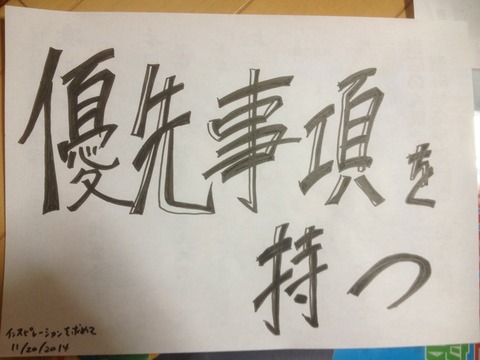 優先事項を
持つ
インスピレーションを求めて
11/20/2014